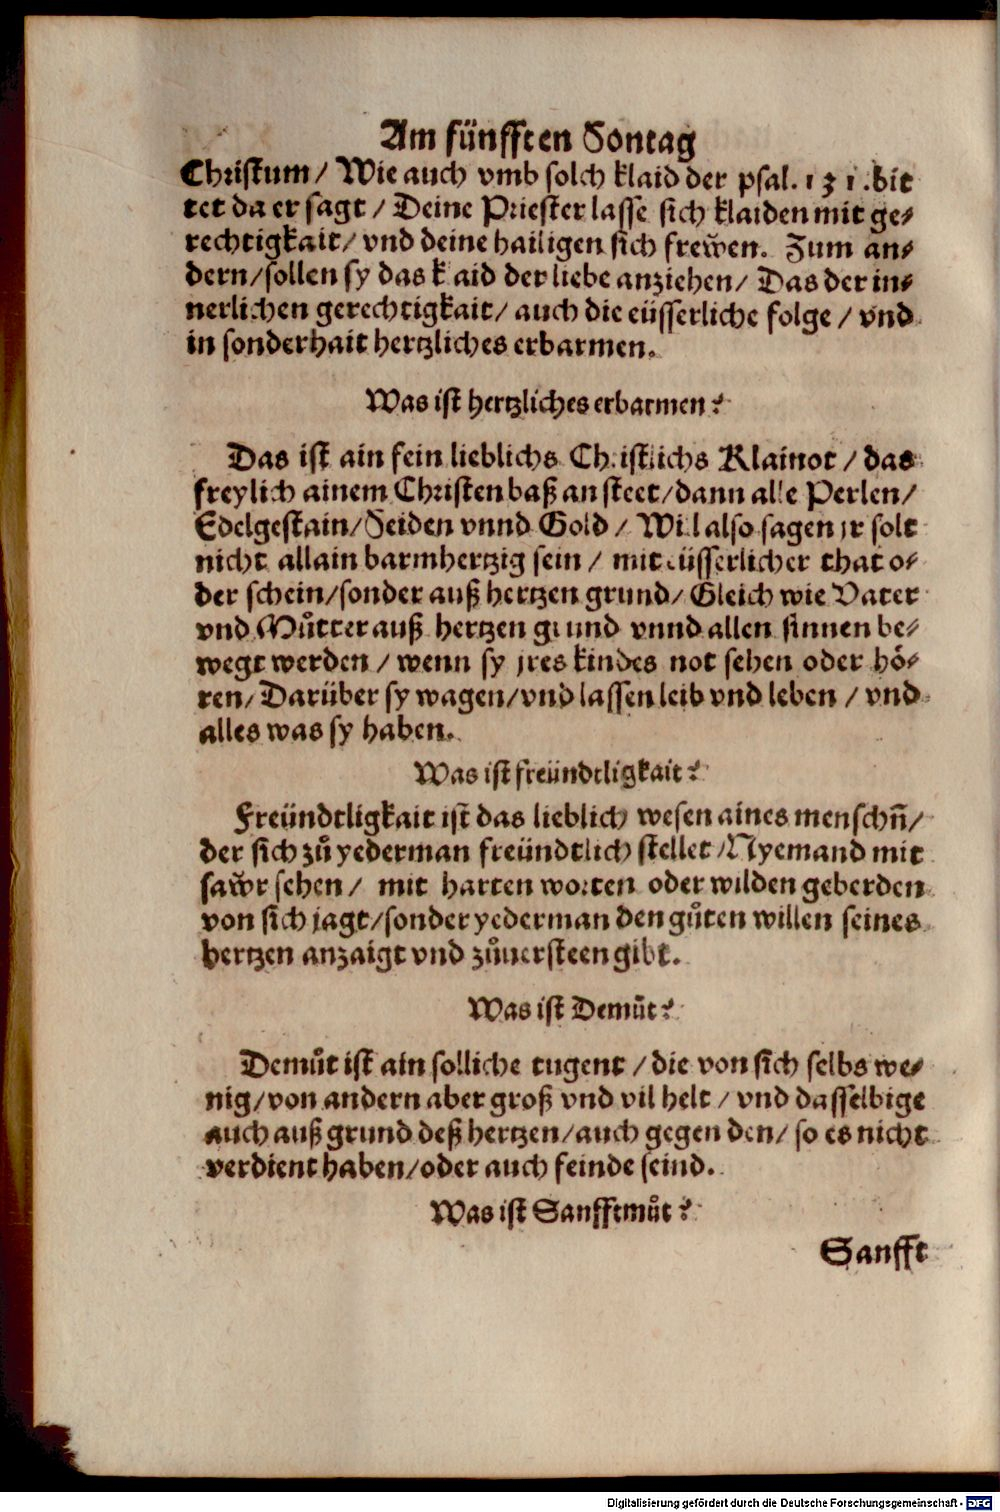 Am fünfften Sontag
Christum / Wie auch vmb solch klaid der psal. 131. bit
tet da er sagt / Deine Priester lasse sich klaiden mit ge⸗
rechtigkait / vnd deine hailigen sich frewͤen. Zum an⸗
dern / sollen sy das k aid der liebe anziehen / Das der in⸗
nerlichen gerechtigkait / auch die eüsserliche folge / vnd
in sonderhait hertzliches erbarmen.
Was ist hertzliches erbarmen?
Das ist ain fein lieblichs Christlichs Klainot / das
freylich ainem Christen baß ansteet / dann alle Perlen /
Edelgestain / Seiden vnnd Gold / Wil also sagen jr solt
nicht allain barmhertzig sein / mit eüsserlicher that o⸗
der schein / sonder auß hertzen grund / Gleich wie Vater
vnd Muͦtter auß hertzen grund vnnd allen sinnen be⸗
wegt werden / wenn sy jres kindes not sehen oder hoͤ⸗
ren / Darüber sy wagen / vnd lassen leib vnd leben / vnd
alles was sy haben.
Was ist freündtligkait?
Freündtligkait ist das lieblich wesen aines menschn̄ /
der sich zuͦ yederman freündtlich stellet / Nyemand mit
sawͤr sehen / mit harten worten oder wilden geberden
von sich jagt / sonder yederman den guͦten willen seines
hertzen anzaigt vnd zuͦuersteen gibt.
Was ist Demuͦt?
Demuͦt ist ain solliche tugent / die von sich selbs we⸗
nig / von andern aber groß vnd vil helt / vnd dasselbige
auch auß grund deß hertzen / auch gegen den / so es nicht
verdient haben / oder auch feinde seind.
Was ist Sanfftmuͦt?
Sanfft
Digitalisierung gefördert durch die Deutsche Forschungsgemeinschaft - DFG